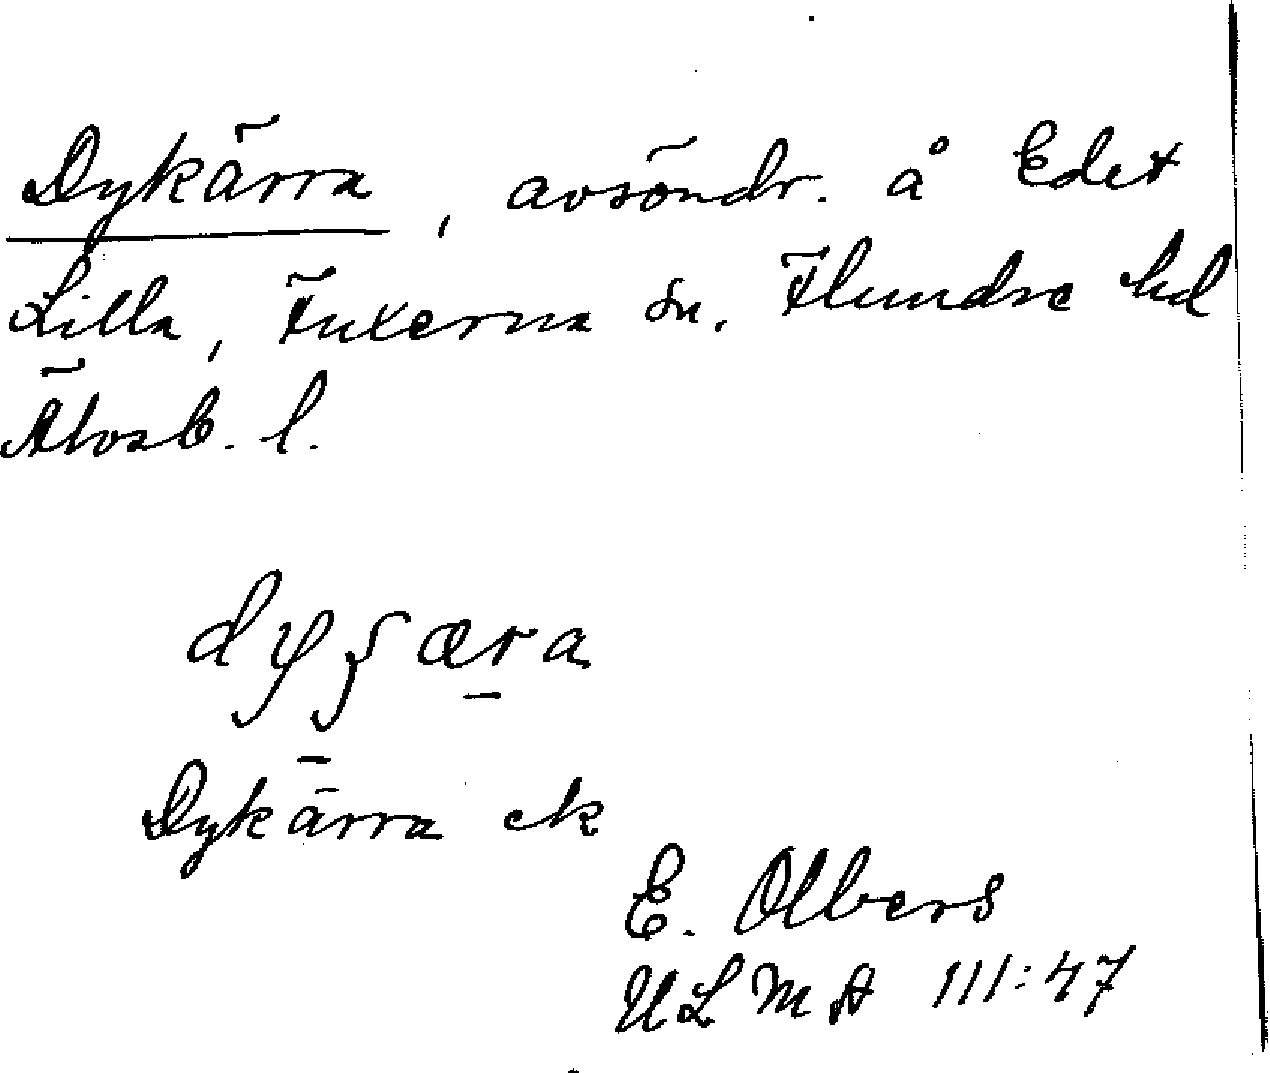 Dykärra, avsöndr. å Edet
Lilla, Fuxerna sn. Flundre hd
Älvsb. l.
dyʃæra
Dykärra ek
E. Olbers
ULMA 111:47